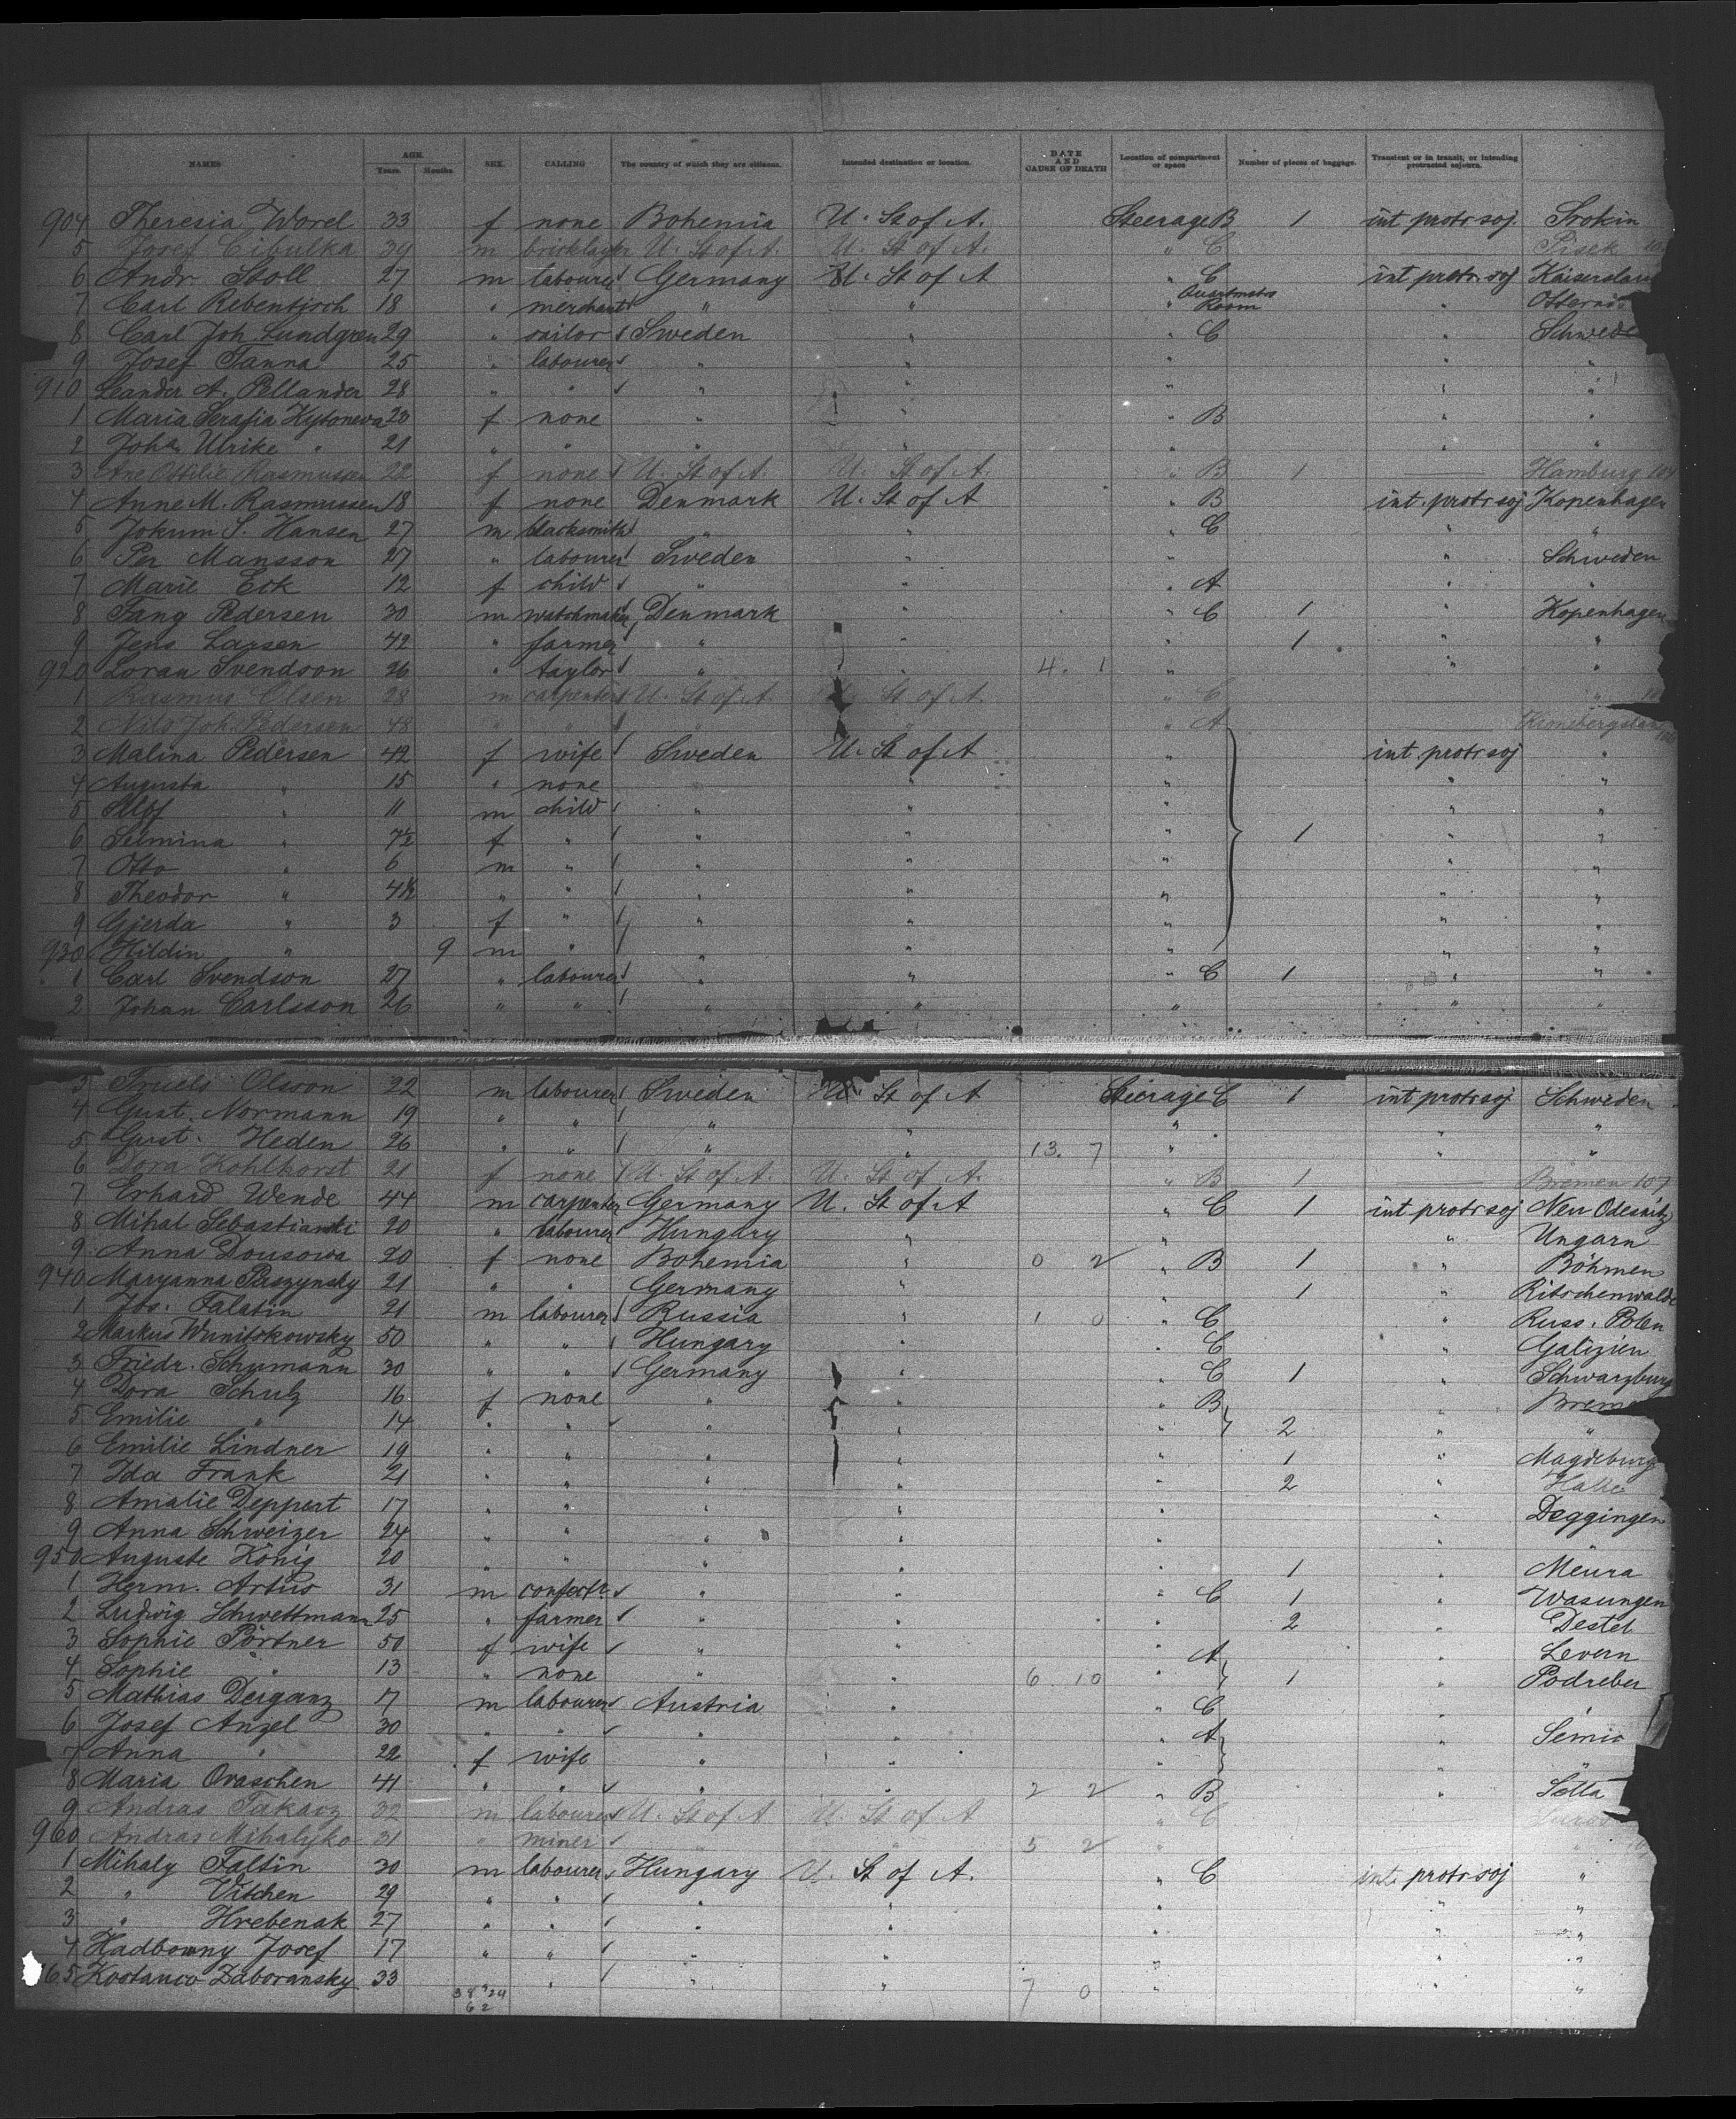 NAMES AGE. Years. Months SEX. CALLING The country of which they are citizens. Intended destination or location. DATE AND CAUSE OF DEATH Location of compartment or space Number of pieces of baggage. Transient or in transit, or intending protracted sojourn.
904 Theresia Worel 33 f none Bohemia U. St of A. Steerage B 1 int protr soj.
5 Josef Cibulka 39 m bricklayer U. St of A. U. St of A. " C Pisek
6 Andr Stoll 27 m labourer Germany U. St of A " C int protr. soj
7 Carl Rebentisch 18 " merchant " " " Quartmstrs Room "
8 Carl Joh. Lundgren 29 " sailor Sweden " " C "
9 Josef Tanna 25 " labourer " " " " "
910 Leander A. Pellander 28 " " " " " " "
1 Maria Serafia Kytoneva 23 f none " " " B " "
2 Joha Ulrike " 21 " " " " " " "
3 Ane Ottilie Rasmussen 22 f none U. St of A. U. St of A. " B 1 — Hamburg
4 Anne M. Rasmussen 18 f none Denmark U. St of A " B int. protr soj Kopenhagen
5 Jokum S. Hansen 27 m blacksmith " " " C " "
6 Per Mansson 27 " labourer Sweden " " " Schweden
7 Marie Eck 12 f child " " " A " "
8 Fang Pedersen 30 m watchmaker Denmark " " C 1 " Kopenhagen
9 Jens Larsen 42 " farmer " " " 1 " "
920 Loran Svendson 26 " taylor " " 4. 1 " " "
1 Rasmus Olsen 28 m carpenter U. St of A. U. St of A. " C "
2 Nils Joh. Pedersen 48 " " " " " A
3 Malina Pedersen 42 f wife Sweden U. St of A " int. protr soj "
4 Augusta " 15 " none " " " " "
5 " 11 m child " " " " "
6 Selmina " 7½ f " " " " 1 " "
7 Otto " 6 m " " " " " "
8 Theodor " 4½ " " " " " " "
9 Gjerda " 3 f " " " " " "
930 Hildin " 9 m " " " " " "
1 Carl Svendson 27 " labourer " " " C 1 " "
2 Johan Carlsson 26 " " " " " " "
3 Truels Olsson 22 m labourer Sweden U. St of A Steerage C 1 int protr soj Schweden
4 Gust. Normann 19 " " " " " " "
5 Gust. Heden 26 " " " " 13. 7 " " "
6 Dora Kohlhorst 21 f none U. St of A. U. St of A. " B 1 — Bremen 107
7 Erhard Wende 44 m carpenter Germany U. St of A " C 1 int protr soj Neu
8 Mihal Sebastianski 20 " labourer Hungary " " " Ungarn
9 Anna Dousowa 20 f none Bohemia " 0 2 " B 1 " Böhmen
940 Maryanna Paszynsky 21 " " Germany " " 1 " Ritschenwalde
1 Jos. Falatin 21 m labourer Russia " 1 0 " C " Russ. Polen
2 Markus Wunitskowsky 50 " " Hungary " " C " Galizien
3 Friedr. Schumann 30 " " Germany " " C 1 " Schwarzburg
4 Dora Schulz 16 f none " " " B "
5 Emilie " 14 " " " " " 2 " "
6 Emilie Lindner 19 " " " " " 1 " Magdeburg
7 Ida Frank 21 " " " " " 2 " Halle
8 Amalie Deppert 17 " " " " " " Deggingen
9 Anna Schweizer 24 " " " " " "
950 Auguste König 20 " " " " " 1 " Meura
1 Herm. Artus 31 m confectr. " " " C 1 " Wasungen
2 Ludwig Schwettmann 25 " farmer " " " 2 " Destel
3 Sophie Pörtner 50 f wife " " " A " Levern
4 Sophie " 13 " none " " 6 10 " 1 " Podreber
5 Mathias Derganz 17 m labourer Austria " " C " "
6 Josef Anzel 30 " " " " " A " Semic
7 Anna " 22 f wife " " " " "
8 Maria Oraschen 41 " " " " 2 2 " B "
9 Andras Takacz 32 m labourer U. St of A U. St of A " C
960 Andras Mihalyko 31 " miner " " 5 2 "
1 Mihaly Faltin 30 m labourer Hungary U. St of A. " C int. protr soj "
2 " Vitchen 29 " " " " " " "
3 " Hrebenak 27 " " " " " " "
4 Hadbowny Josef 17 " " " " " " "
65 Kostanco Zaboransky 33 " " " 7 0 " " "
62